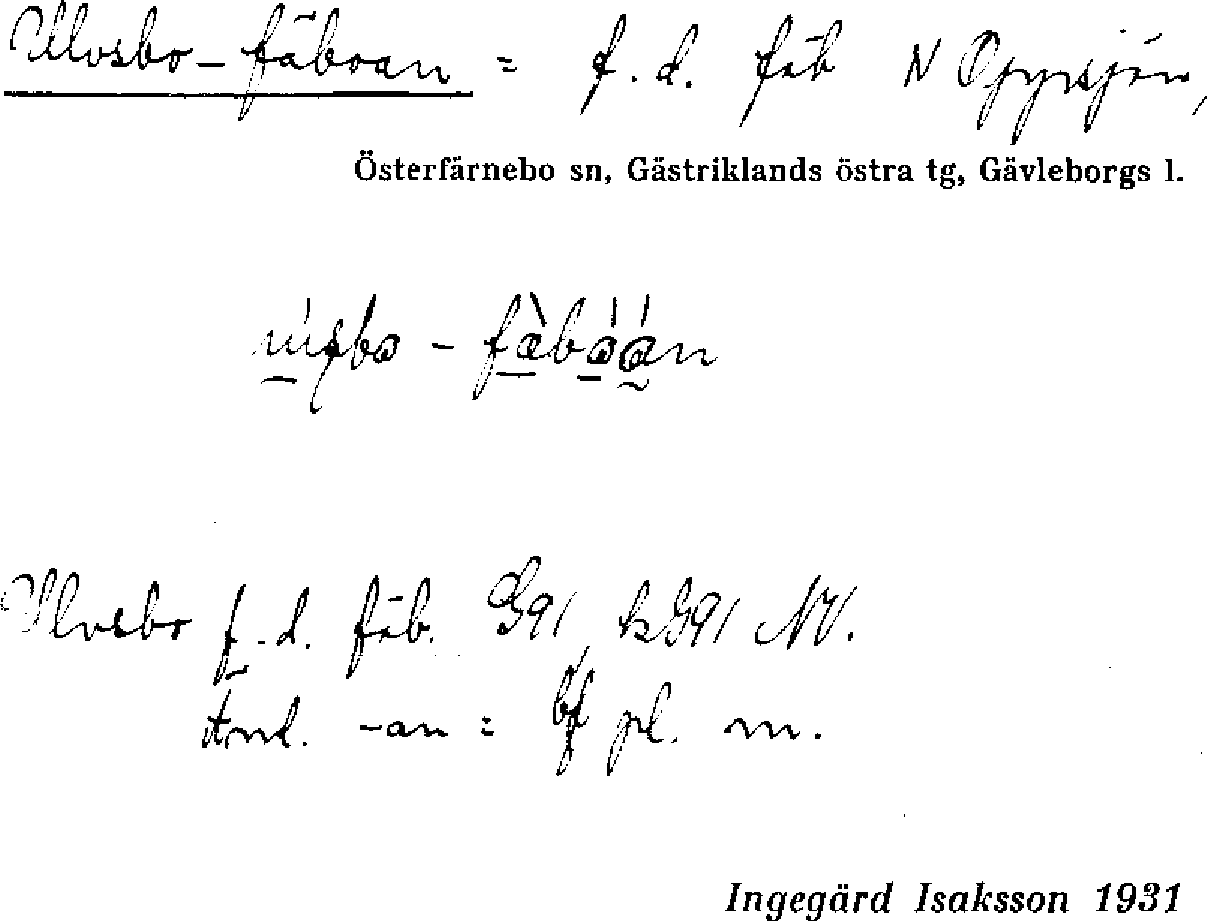 Ulvsbo-fäboan = f.d. fäb N
Österfärnebo sn, Gästriklands östra tg, Gävleborgs l.
Ulvsbo f.d. fäb. G91, kG91 NV.
Änd. -an = bf pl. m.
Ingegärd Isaksson 1931